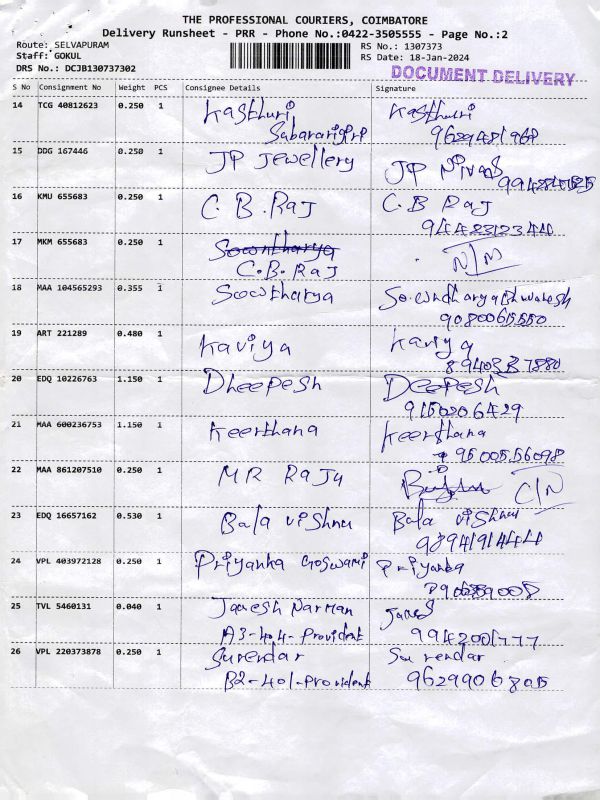 THE PROFESSIONAL COURIERS, COIMBATORE
Delivery Runsheet - PRR - Phone No.:0422-3505555 - Page No.:2
Route: SELVAPURAM
Staff: GOKUL
DRS No.: DCJB130737302
RS No.: 1307373
RS Date: 18-Jan-2024
DOCUMENT DELIVERY
S No Consignment No Weight PCS Consignee Details Signature
14 TCG 40812623 0.250 1 Kasthuri Kasthuri
Sabararigiri
15 DDG 167446 0.250 1 JP Jewellery JP Nivas
16 KMU 655683 0.250 1 C.B.Raj C.B Raj
9442323440
17 MKM 655683 0.250 1 Sowntharya N/M
C.B.Raj
18 MAA 104565293 0.355 1 Sowtharya
9080065550
19 ART 221289 0.480 1 Kaviya Kaviya
20 EDQ 10226763 1.150 1 Dheepesh Deepesh
9150206429
21 MAA 600236753 1.150 1 Keerthana Keerthana
9500556098
22 MAA 861207510 0.250 1 MR Raju C/N
23 EDQ 16657162 0.530 1 Bala Vishnu Bala Vishnu
9894191444
24 VPL 403972128 0.250 1 Priyanka Goswami Priyanka
25 TVL 5460131 0.040 1 Janesh Narman Janes
A3-404-Provident 9942001777
26 VPL 220373878 0.250 1 Surendar Surendar
B2-401-Provident 9629906805